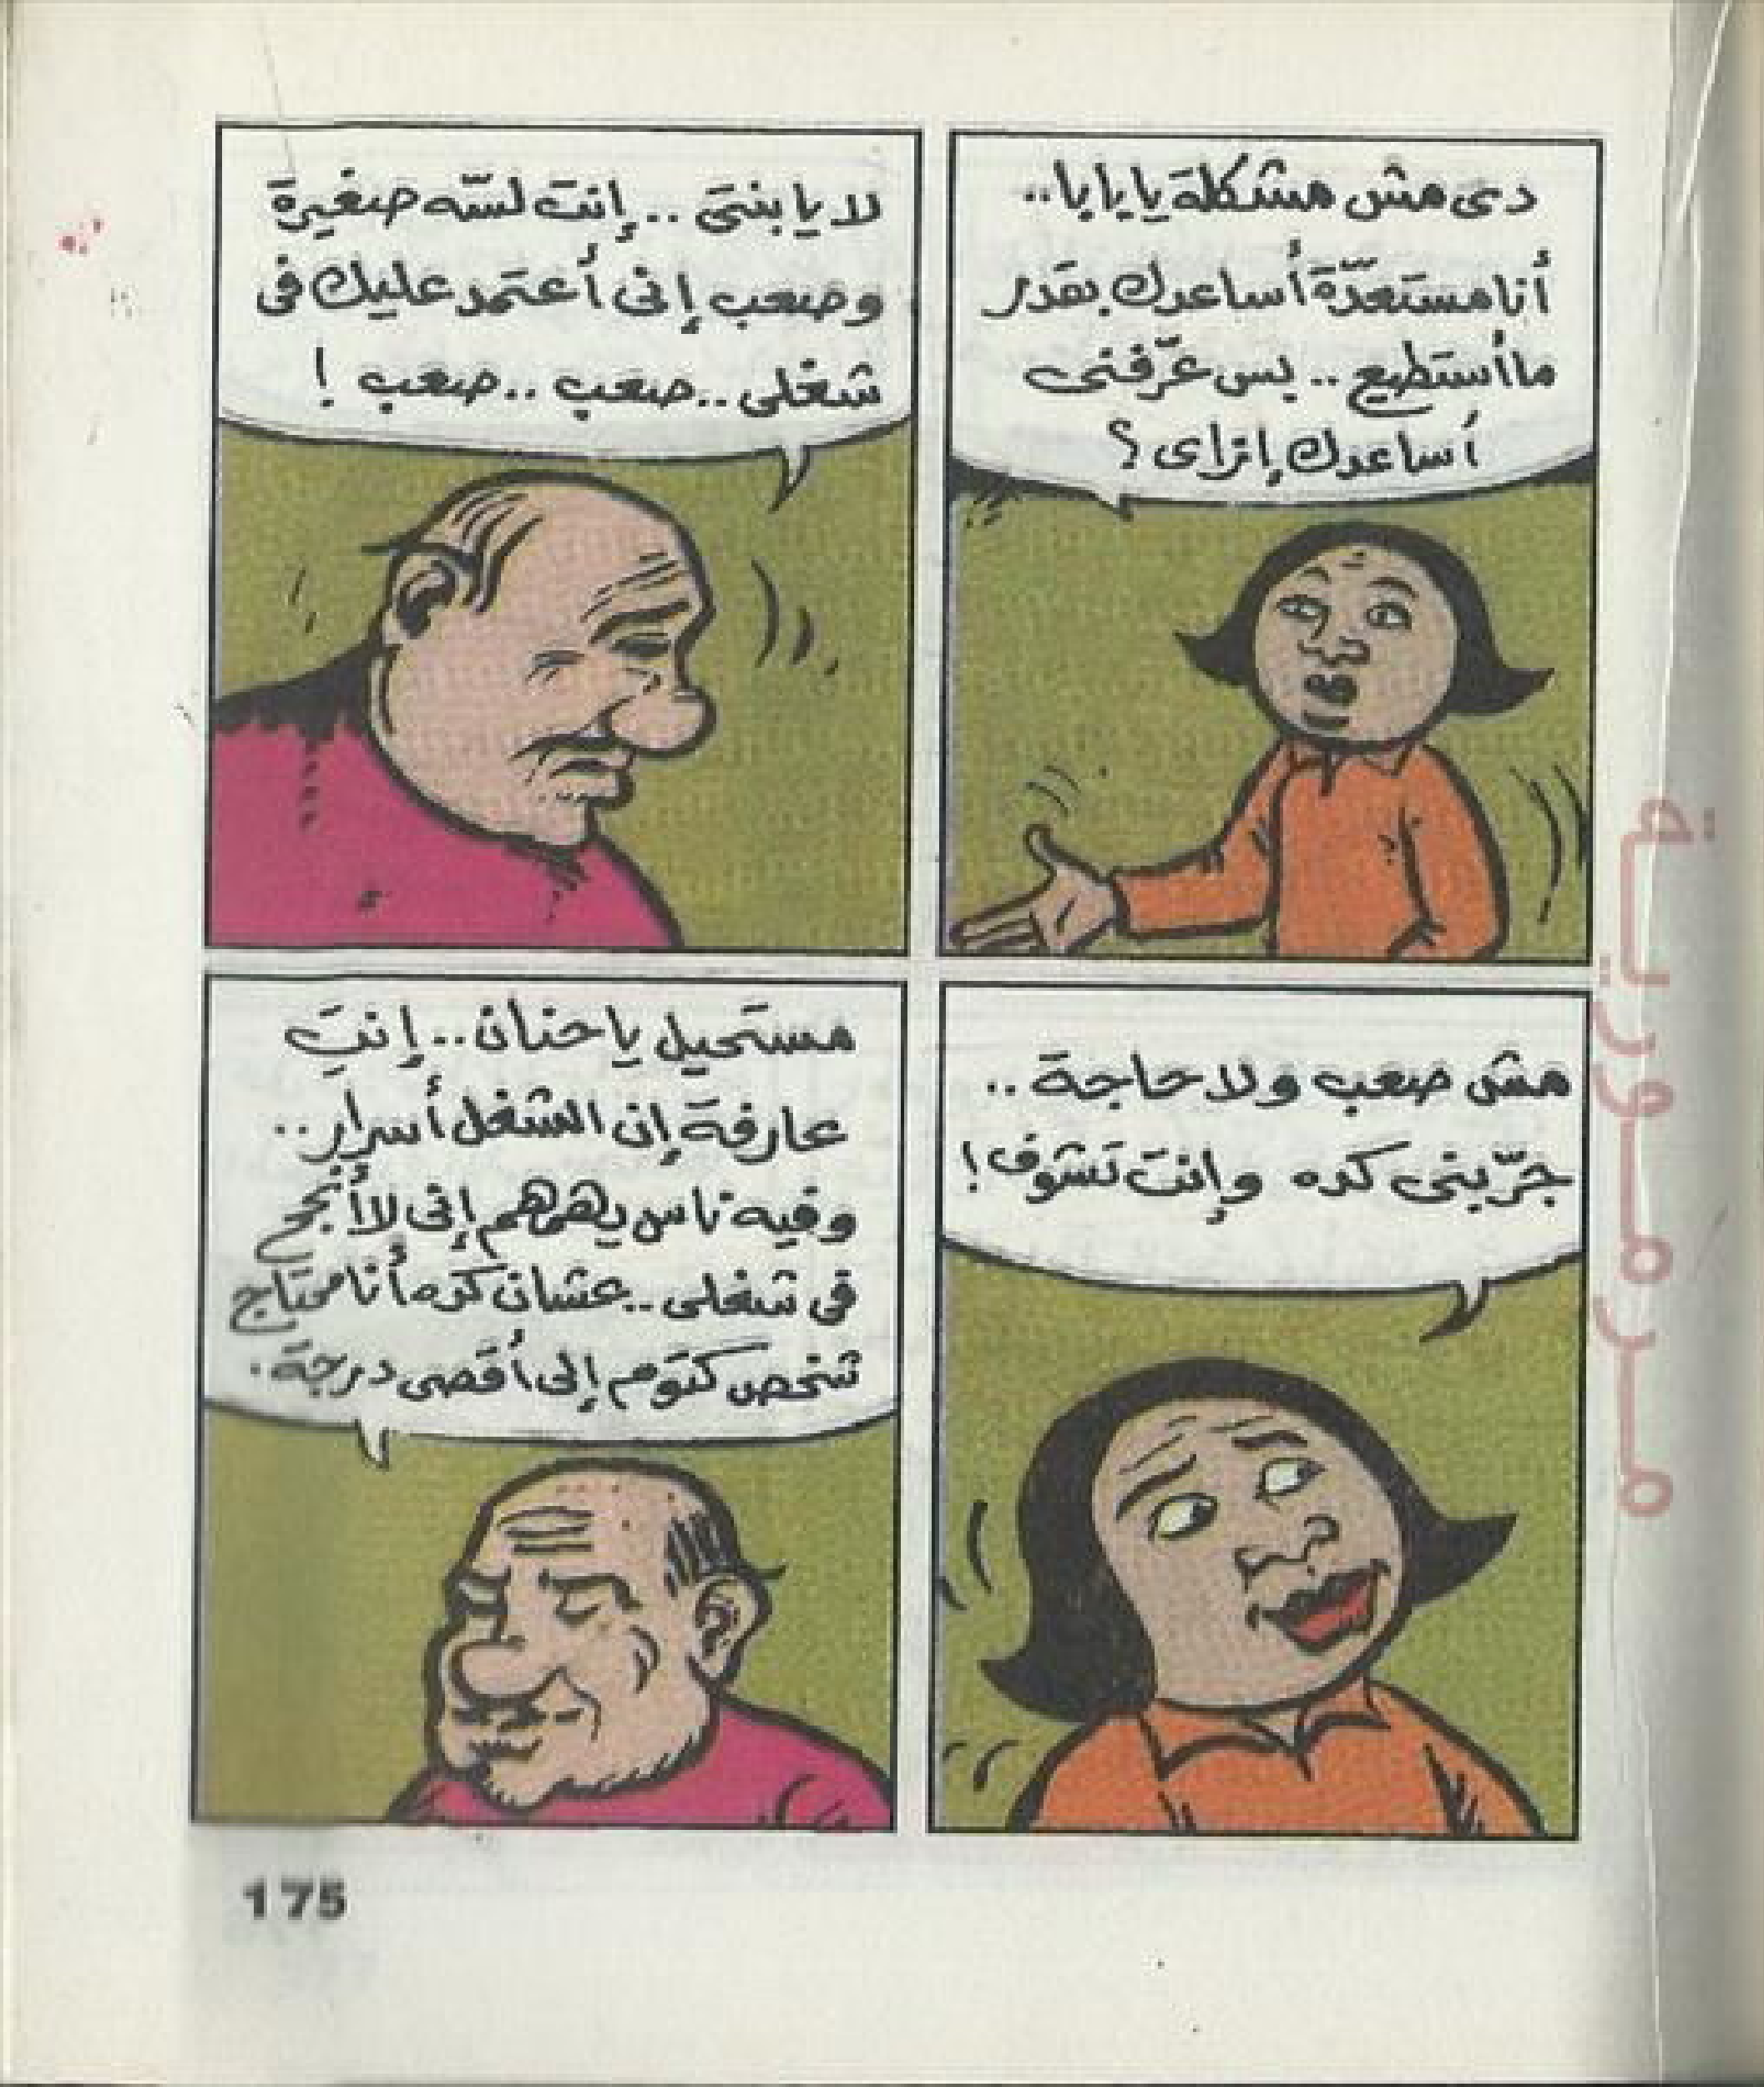 دى مش مشكلة يا بابا..
أنا مستعدّة أساعدك بقدر
ما أستطيع .. بس عرّفنى
أساعدك إزاى ؟
لا يا بنتى .. إنت لسّه صغيرة
وصعب إنى أعتمد عليك فى
شغلى .. صعب .. صعب !
مش صعب ولا حاجة ..
جرّبنى كده وإنت تشوف !
مستحيل يا حنان .. إنتِ
عارفة إن الشغل أسرار ..
وفيه ناس يهمهم إنى لا أنجح
فى شغلى .. عشان كده أنا محتاج
شخص كتوم إلى أقصى درجة .
175
مرمورية